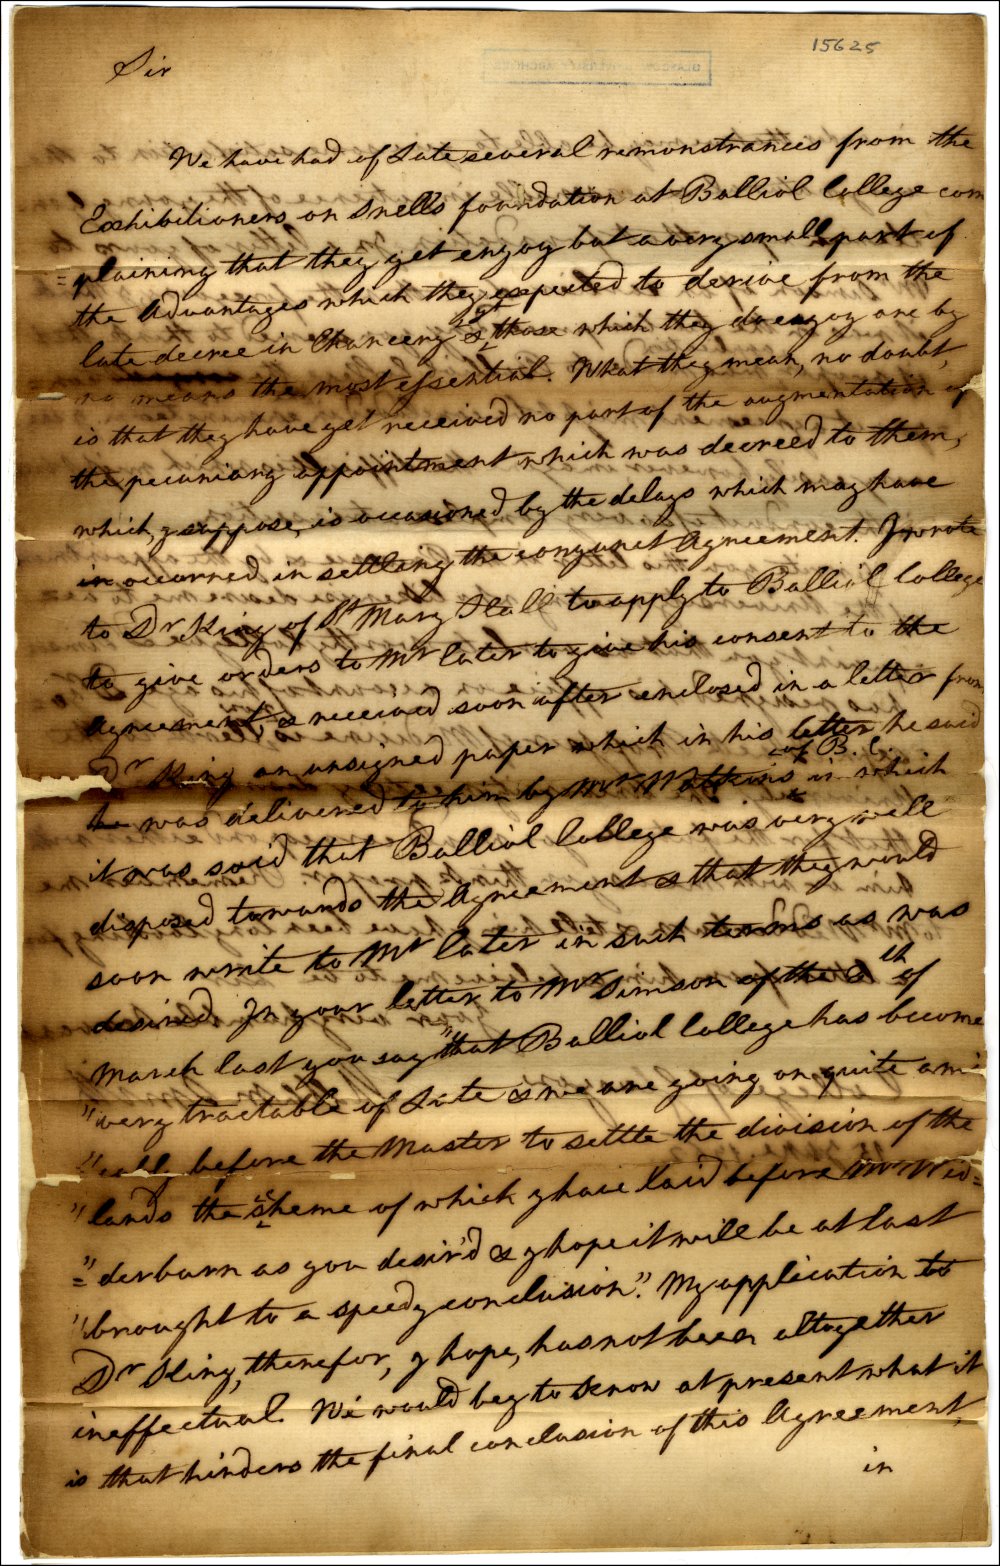 15625
Sir
We have had of Late several remonstrances from the
Exhibitioners on Snells foundation at Balliol College com
= plaining that they yet enjoy but a very small part of
the Advantages which they expected to derive from the
late decree in Chancery & that those which they do enjoy are by
no means the most essential. What they mean, no doubt,
is that they have yet received no part of the augmentation of
the pecuniary appointment which was decreed to them,
which, I suppose, is occasioned by the delays which may have
occurred in settling the conjunct Agreement. I wrote
to Dr King of St Mary Hall to apply to Balliol College
to give orders to Mr Cater to give his consent to the
Agreement & received soon after enclosed in a letter from
Dr King an unsigned paper which in his letter he said
was delivered to him by Mr Watkins of B. C. in which
it was said that Balliol College was very well
disposed towards the Agreement & that they would
soon write to Mr Cater in such terms as was
desired. In your letter to Mr Simson of the 6th of
March last you say "that Balliol College has become
" very tractable of Late & we are going on quite ami
" cally before the Master to settle the division of the
" lands the scheme of which I have laid before Mr Wed=
"= derburn as you desir'd & I hope it will be at last
" brought to a speedy conclusion". My application to
Dr King, therefor, I hope, has not been altogether
ineffectual. We would beg to know at present what it
is that hinders the final conclusion of this Agreement,
in